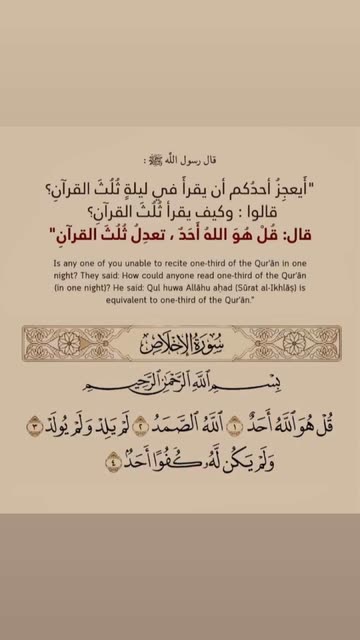 قال رسول الله ﷺ :
"أَيعجِزُ أحدُكم أن يقرأَ في ليلةٍ ثُلُثَ القرآنِ؟
قالوا : وكيف يقرأ ثُلُثَ القرآنِ؟
قال: قُلْ هُوَ اللهُ أَحَدٌ ، تعدِلُ ثُلُثَ القرآنِ"
Is any one of you unable to recite one-third of the Qur'ān in one
night? They said: How could anyone read one-third of the Qur'ān
(in one night)? He said: Qul huwa Allāhu aḥad (Sūrat al-Ikhlāṣ) is
equivalent to one-third of the Qur'ān."
سُورَةُ الإِخْلَاصِ
بِسْمِ اللَّهِ الرَّحْمَٰنِ الرَّحِيمِ
قُلْ هُوَ ٱللَّهُ أَحَدٌ ١ ٱللَّهُ ٱلصَّمَدُ ٢ لَمْ يَلِدْ وَلَمْ يُولَدْ ٣
وَلَمْ يَكُن لَّهُۥ كُفُوًا أَحَدٌۢ ٤